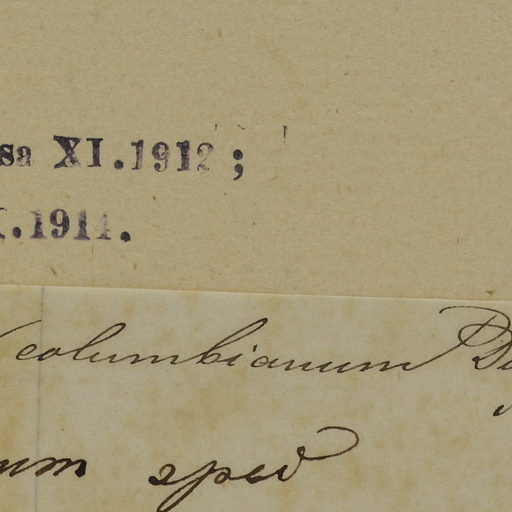 sa XI.1912 ;
.1914.
columbianum
um spec